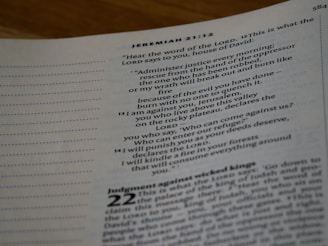 JEREMIAH 21:12
584
"Hear the word of the LORD. 12 This is what the
LORD says to you, house of David:
"'Administer justice every morning;
rescue from the hand of the oppressor
the one who has been robbed,
or my wrath will break out and burn like
fire
because of the evil you have done –
burn with no one to quench it.
13 I am against you, Jerusalem,
you who live above this valley
on the rocky plateau, declares the
LORD –
you who say, "Who can come against us?
Who can enter our refuge?"
14 I will punish you as your deeds deserve,
declares the LORD.
I will kindle a fire in your forests
that will consume everything around
you.'"
Judgment against wicked kings
22 This is what the LORD says: 'Go down to
the palace of the king of Judah and